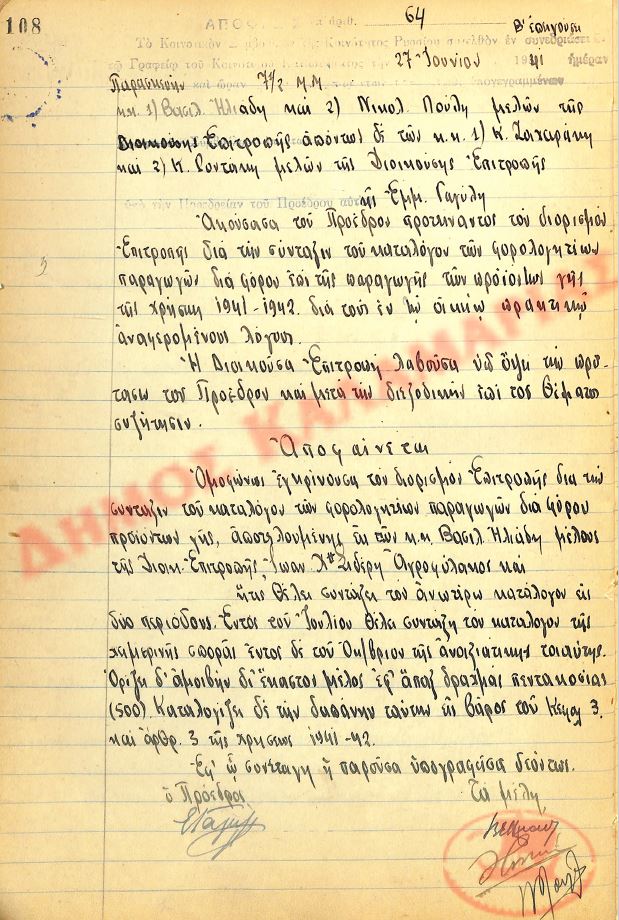 108
ΑΠΟΦ ἀριθ. 64
Τὸ Κοινοτικὸν Συμβούλιον τῆς Κοινότητος Ρυσίου συνελθὸν ἐν συνεδριάσει
Β' ἐπιγοῦσι
τῷ Γραφείῳ τοῦ 27 Ἰουνίου 1941 ἡμέραν
Παρασκευὴν καὶ ὥραν 7 1/2 μ.μ. ὑπογεγραμμένων
κ.κ. 1) Βασιλ. Ηλιάδη και 2) Νικολ. Πούλη μελών της
Διοικούσης Επιτροπής απόντων δε των κ.κ. 1) Κ. Ζαχαράκη
και 2) Κ. Ροντάκη μελών της Διοικούσης Επιτροπής
ὑπὸ τὴν Προεδρείαν τοῦ Προέδρου αὐτῆς Εμμ. Γαγύλη
Ακούσασα του Προέδρου προτείναντος τον διορισμόν
Επιτροπής διά την σύνταξιν του καταλόγου των φορολογητέων
παραγωγών διά φόρον επί της παραγωγής των προϊόντων γης
της χρήσεως 1941-1942. διά τους εν τω οικείω πρακτικώ
αναφερομένους λόγους.
Η Διοικούσα Επιτροπή λαβούσα υπ' όψει την πρό-
τασιν του Προέδρου και μετά την διεξοδικήν επί του θέματος
συζήτησιν.
Αποφαίνεται
Ομοφώνως εγκρίνουσα τον διορισμόν Επιτροπής δια την
σύνταξιν του καταλόγου των φορολογητέων παραγωγών διά φόρου
προϊόντων γης, αποτελουμένης εκ των κ.κ. Βασιλ. Ηλιάδη μέλους
της Διοικ. Επιτροπής, Ιωαν. Χ" Σιδέρη Αγροφύλακος και
ήτις θέλει συντάξει τον ανωτέρω κατάλογον εις
δύο περιόδους. Εντός του Ιουλίου θέλει συντάξη τον κατάλογον της
χειμερινής σποράς εντός δε του Οκ/βρίου της ανοιξιάτικης τοιαύτης.
Ορίζει δ' αμοιβήν δι' έκαστον μέλος εφ' άπαξ δραχμάς πεντακοσίας
(500). Καταλογίζει δε την δαπάνην ταύτην εις βάρος του Κεφαλ 3.
και άρθρ. 3 της χρήσεως 1941-42.
Εφ' ω συνετάγη η παρούσα υπογραφείσα δεόντως.
ο Πρόεδρος Τα μέλη
ΔΗΜΟΣ ΚΑΛΑΜΑΡΙΑΣ